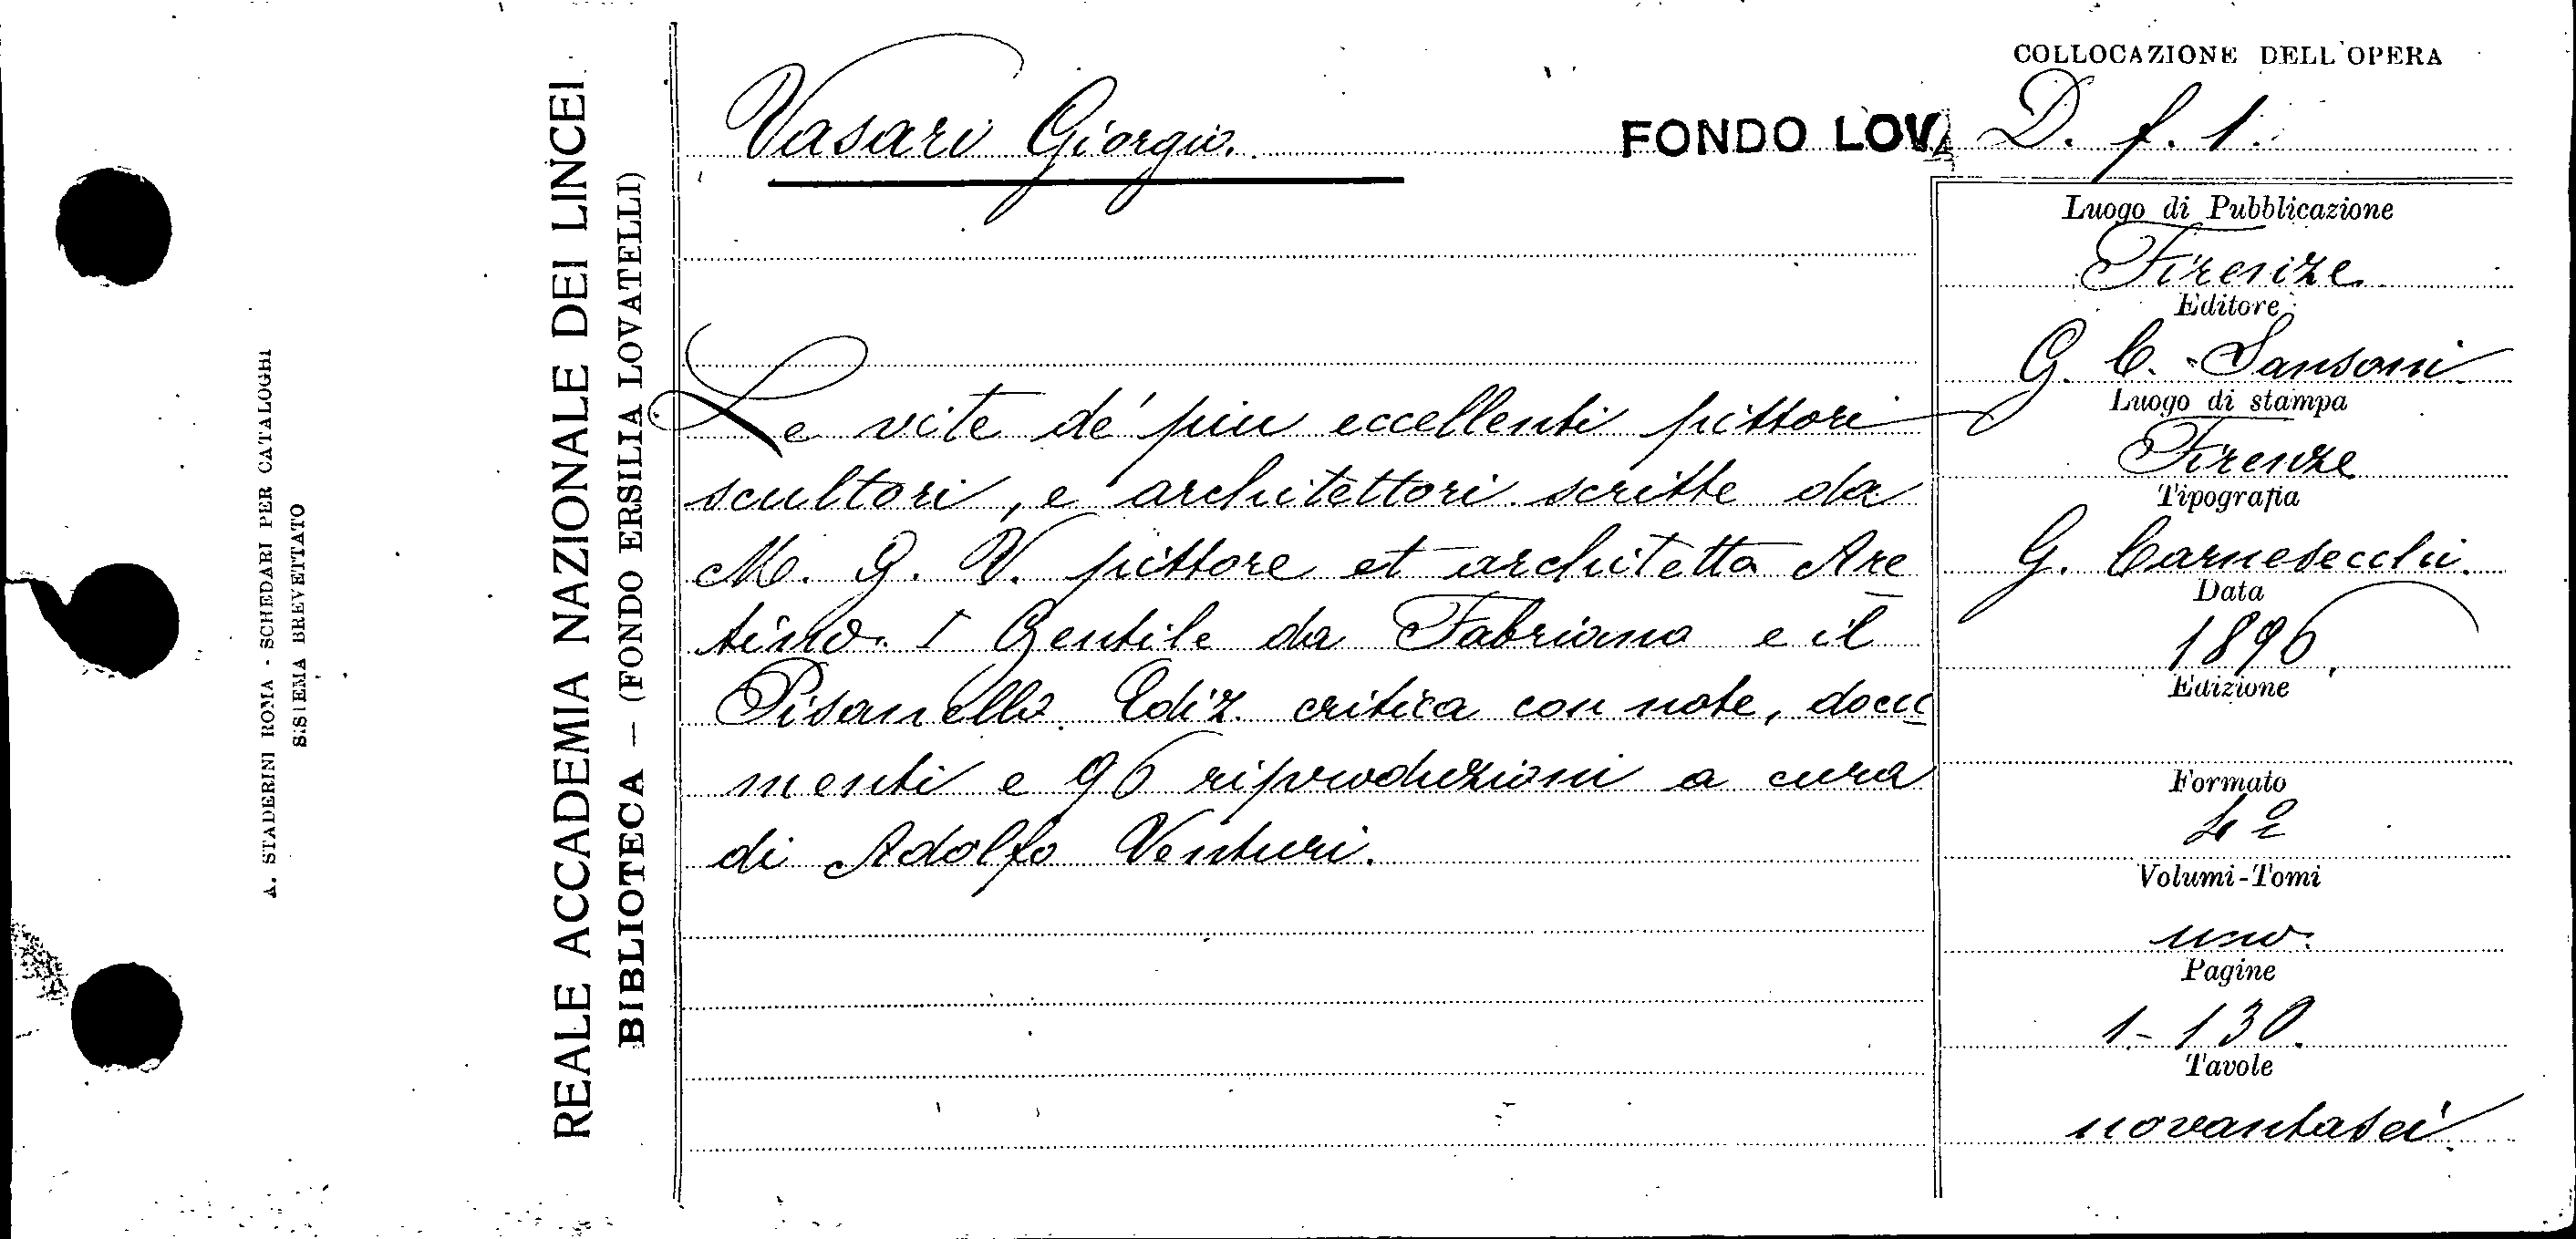 A. STADERINI ROMA - SCHEDARI PER CATALOGHI
SISTEMA BREVETTATO
REALE ACCADEMIA NAZIONALE DEI LINCEI
BIBLIOTECA — (FONDO ERSILIA LOVATELLI)
Vasari Giorgio.
FONDO LOVA
Le vite de' piu eccellenti pittori
scultori, e architettori scritte da
M. G. V. pittore et architetto Are
tino. I Gentile da Fabriano e il
Pisanello. Ediz. critica con note, docu
menti e 96 riproduzioni a cura
di Adolfo Venturi.
COLLOCAZIONE DELL'OPERA
D. f. 1.
Luogo di Pubblicazione
Firenze
Editore
G. C. Sansoni
Luogo di stampa
Firenze
Tipografia
G. Carnesecchi.
Data
1896.
Edizione
Formato
4º
Volumi-Tomi
uno.
Pagine
1-130.
Tavole
novantasei